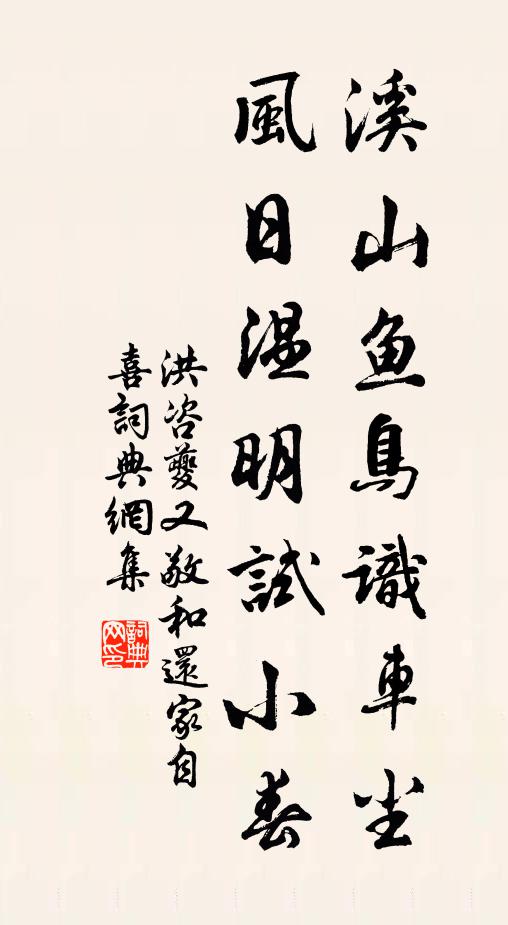 溪山鱼鳥識車尘
風日温明試小春
洪咨夔又敬和還家自
喜詞典網集
詞典网印